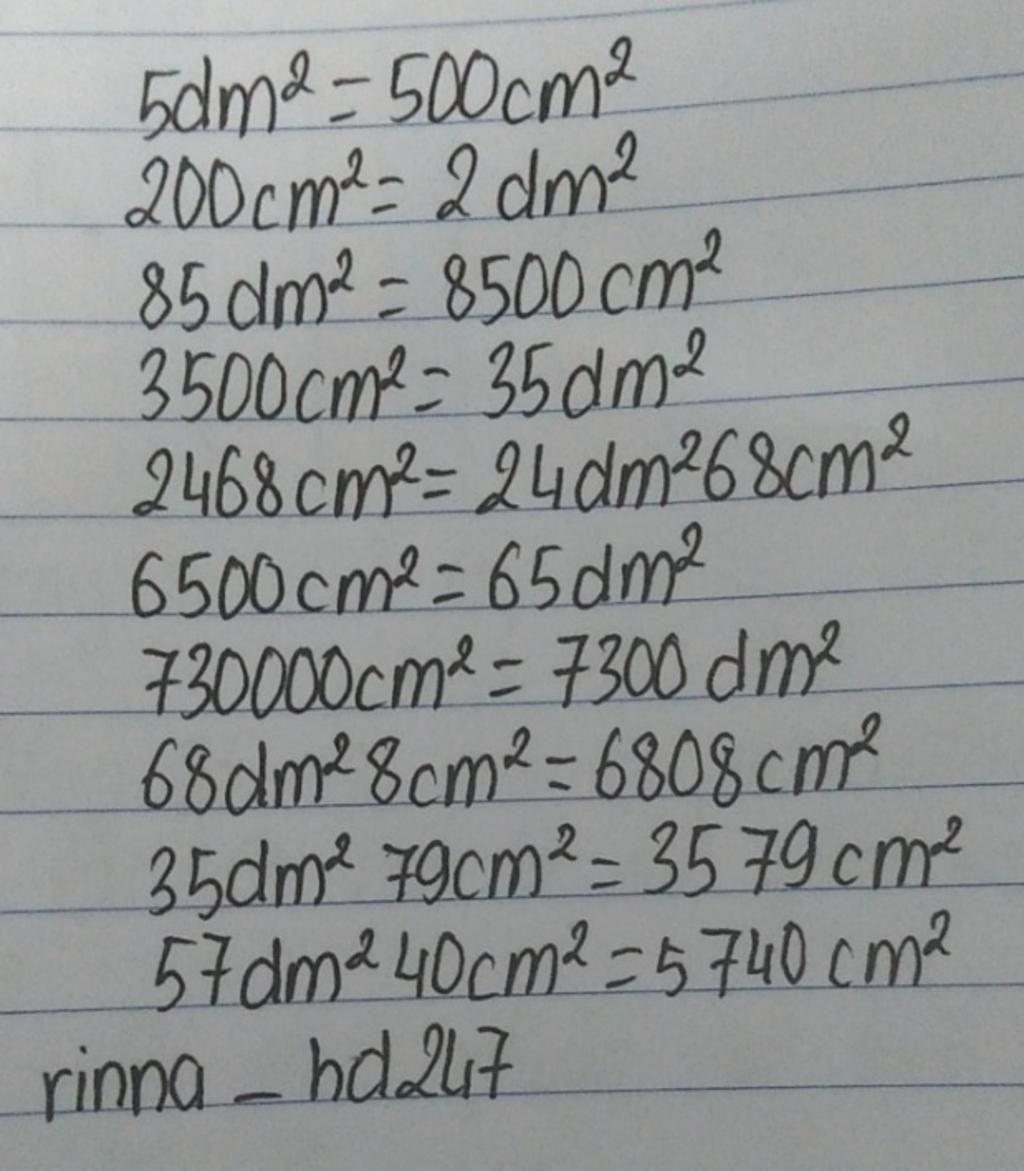 5dm² = 500cm²
200cm² = 2 dm²
85 dm² = 8500 cm²
3500cm² = 35dm²
2468cm² = 24dm²68cm²
6500cm² = 65dm²
730000cm² = 7300 dm²
68dm² 8cm² = 6808cm²
35dm² 79cm² = 3579cm²
57dm² 40cm² = 5740 cm²
rinna _ hd247